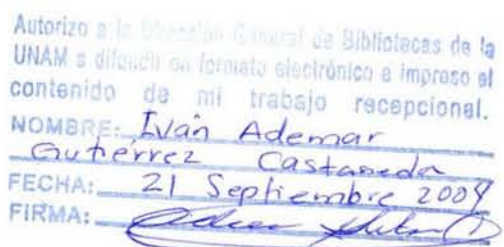 Autorizo a la Dirección General de Bibliotecas de la
UNAM a difundir en formato electrónico e impreso el
contenido de mi trabajo recepcional.
NOMBRE: Iván Ademar
Gutiérrez Castañeda
FECHA: 21 Septiembre 2004
FIRMA: